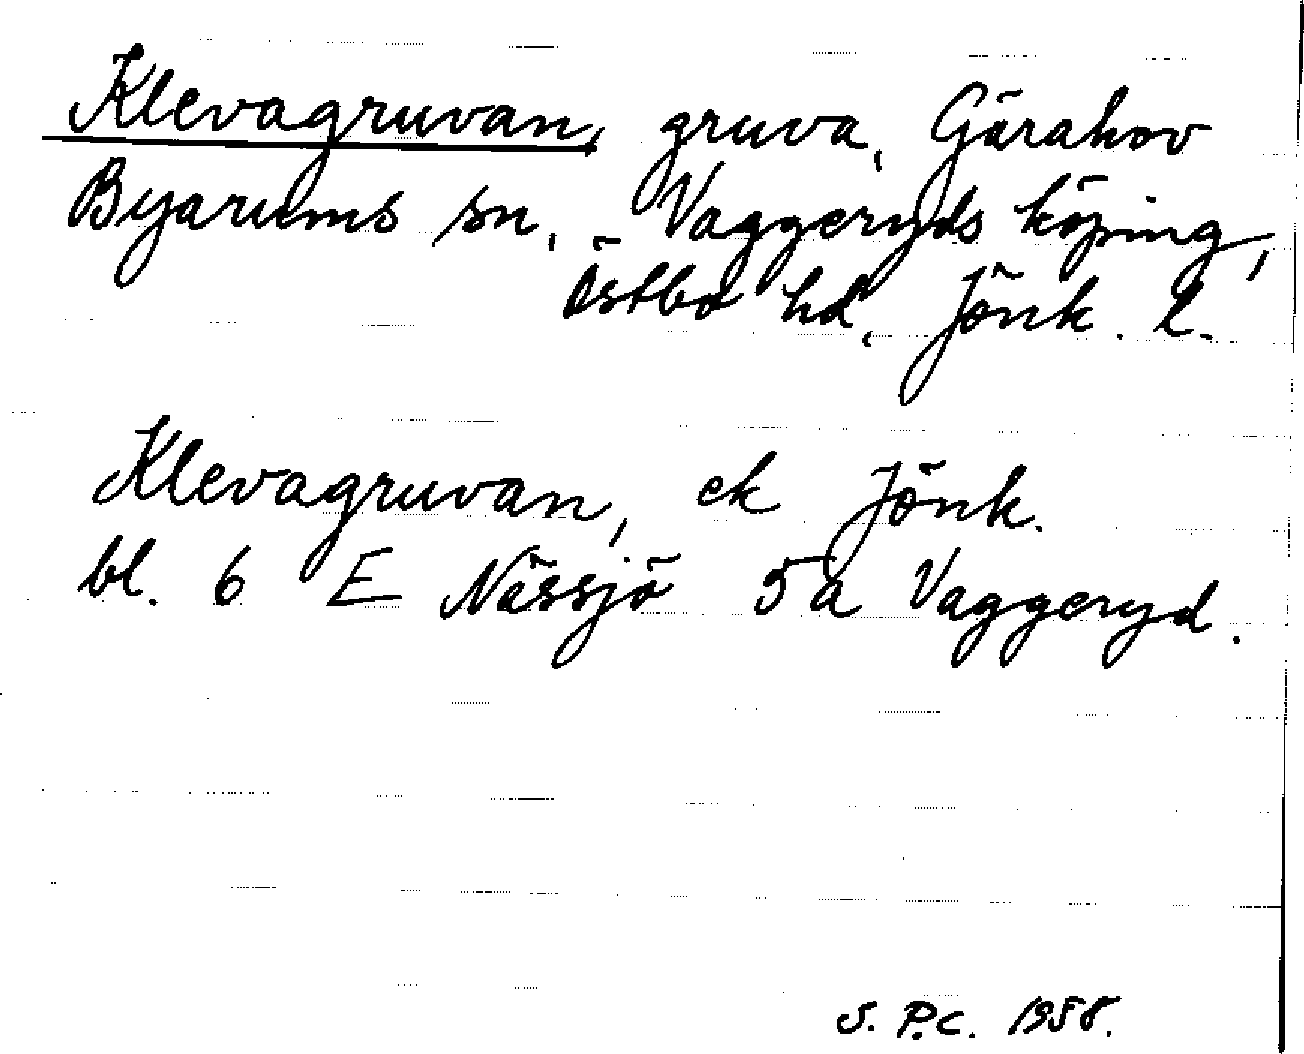 Klevagruvan, gruva, Gärahov
Byarums sn, Vaggeryds köping,
Östbo hd, Jönk. l.
Klevagruvan, ek Jönk.
bl. 6 E Nässjö 5 a Vaggeryd.
S. P.C. 1958.